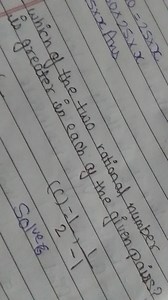 0 = 25xx
0x25xx
5xx Ans
which of the two rational number
is greater in each of the given pairs?
(C) -1/2, 1/-1
Solve